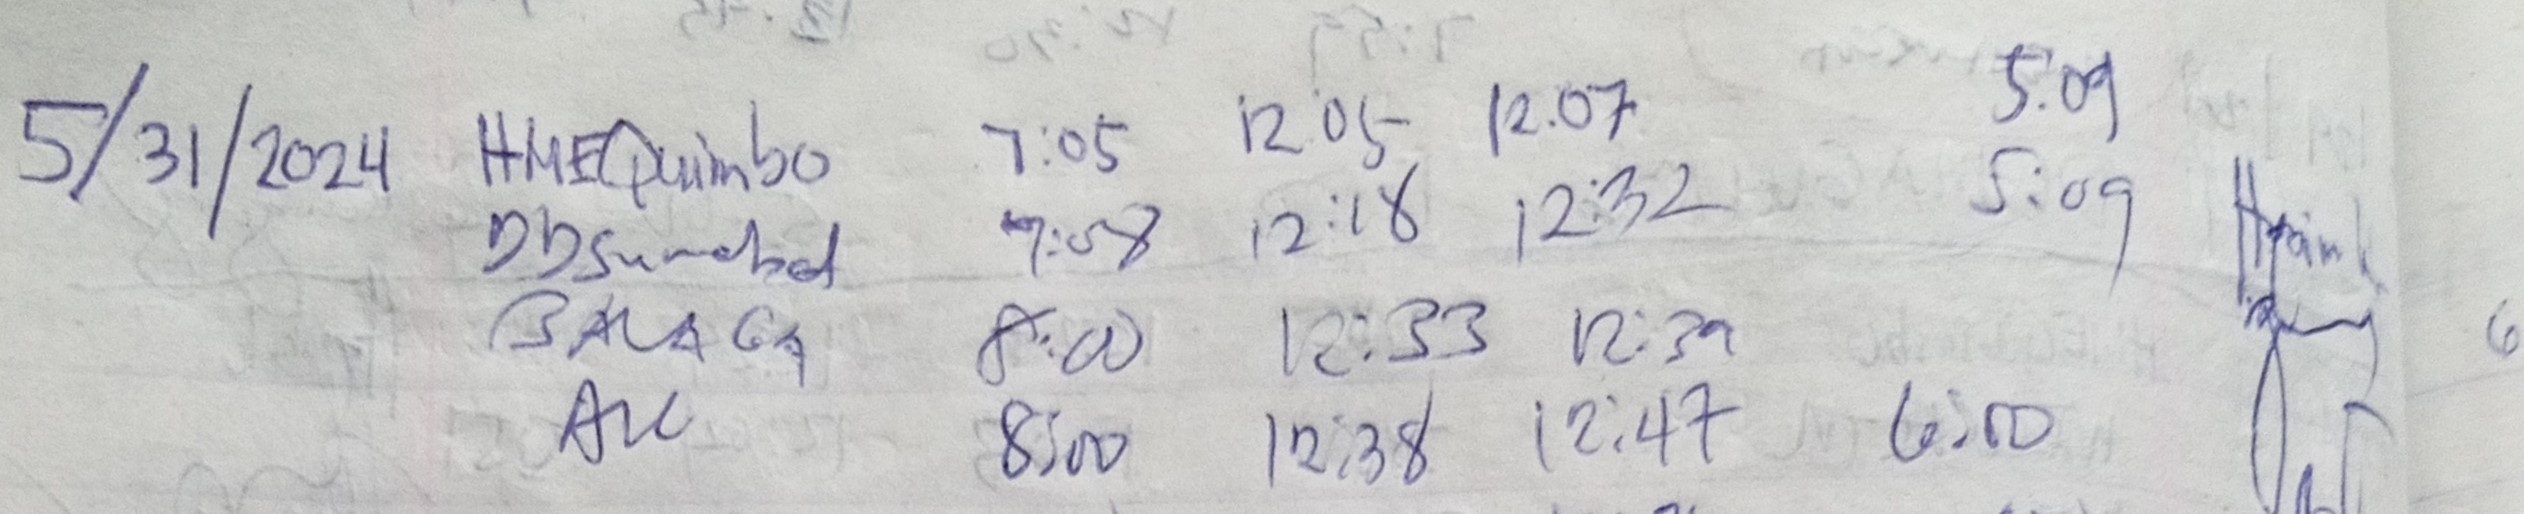 5/31/2024 HMEQuimbo 7:05 12:05 12:07 5:09
7:08 12:18 12:32 5:09
BALAGA 8:00 12:33 12:39
8:00 12:38 12:47 6:00